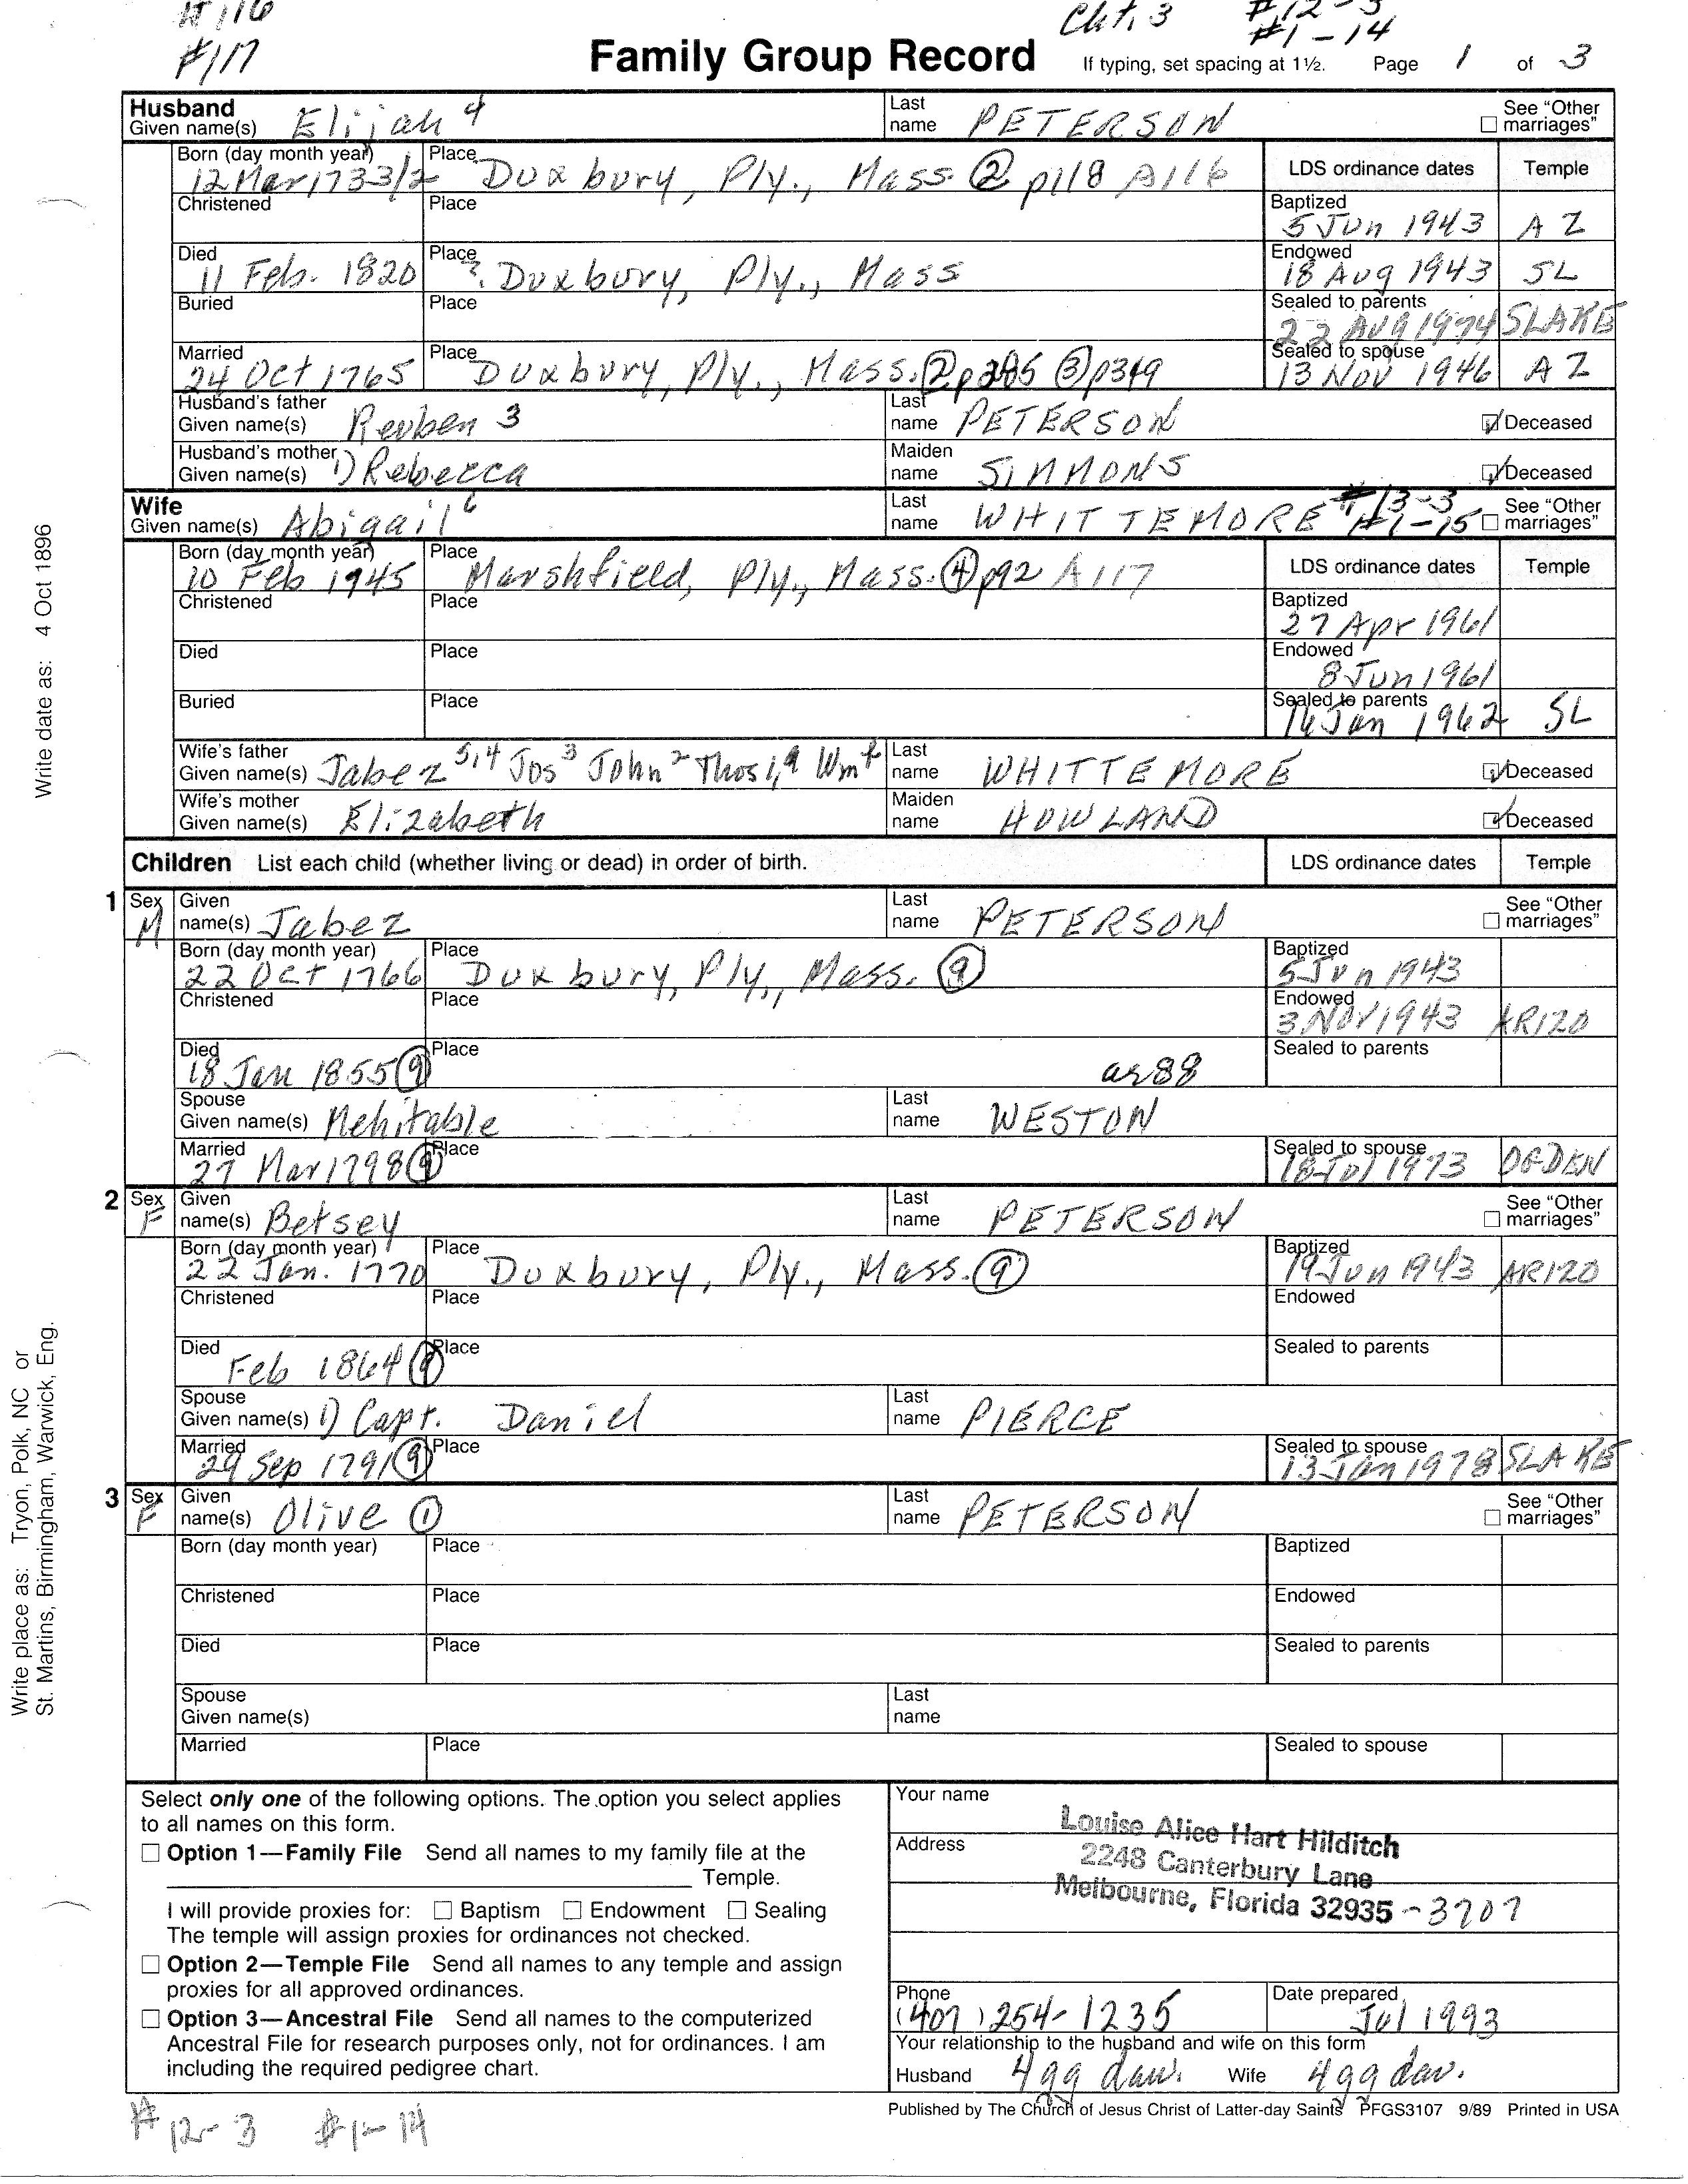 #116
#117
Cht. 3 #12-3
#1-14
Family Group Record If typing, set spacing at 1½. Page 1 of 3
Husband
Given name(s) Elijah 4 Last name PETERSON See “Other marriages”
Born (day month year) 12 Mar 1733/2 Place Duxbury, Ply., Mass. ② p118 A116 LDS ordinance dates Temple
Christened Place Baptized 5 Jun 1943 AZ
Died 11 Feb. 1820 Place ? Duxbury, Ply., Mass Endowed 18 Aug 1943 SL
Buried Place Sealed to parents 22 AUG 1974 SLAKE
Married 24 Oct 1765 Place Duxbury, Ply., Mass. ② p285 ③ p319 Sealed to spouse 13 Nov 1946 AZ
Husband's father
Given name(s) Reuben 3 Last name PETERSON Deceased
Husband's mother
Given name(s) 1) Rebecca Maiden name SIMMONS Deceased
Wife
Given name(s) Abigail 6 Last name WHITTEMORE #13-3 #1-15 See “Other marriages”
Born (day month year) 10 Feb 1945 Place Marshfield, Ply., Mass. ④ p92 A117 LDS ordinance dates Temple
Christened Place Baptized 27 Apr 1961
Died Place Endowed 8 Jun 1961
Buried Place Sealed to parents 14 Jan 1962 SL
Wife's father
Given name(s) Jabez 5,4 Jos 3 John 2 Thos 1,a Wm Last name WHITTEMORE Deceased
Wife's mother
Given name(s) Elizabeth Maiden name HOWLAND Deceased
Children List each child (whether living or dead) in order of birth. LDS ordinance dates Temple
1 Sex M Given name(s) Jabez Last name PETERSON See “Other marriages”
Born (day month year) 22 Oct 1766 Place Duxbury, Ply., Mass. ⑨ Baptized 5 Jun 1943
Christened Place Endowed 3 NOV 1943 ARIZO
Died 18 Jan 1855 ⑨ Place ar88 Sealed to parents
Spouse
Given name(s) Mehitable Last name WESTON
Married 27 Mar 1798 ⑨ Place Sealed to spouse 18 Jul 1973 OGDEN
2 Sex F Given name(s) Betsey Last name PETERSON See “Other marriages”
Born (day month year) 22 Jan. 1770 Place Duxbury, Ply., Mass. ⑨ Baptized 19 Jun 1943 ARIZO
Christened Place Endowed
Died Feb 1864 ⑨ Place Sealed to parents
Spouse
Given name(s) 1) Capt. Daniel Last name PIERCE
Married 29 Sep 1791 ⑨ Place Sealed to spouse 13 Jan 1978 SLAKE
3 Sex F Given name(s) Olive ① Last name PETERSON See “Other marriages”
Born (day month year) Place Baptized
Christened Place Endowed
Died Place Sealed to parents
Spouse
Given name(s) Last name
Married Place Sealed to spouse
Select only one of the following options. The option you select applies
to all names on this form.
Option 1—Family File Send all names to my family file at the
Temple.
I will provide proxies for: Baptism Endowment Sealing
The temple will assign proxies for ordinances not checked.
Option 2—Temple File Send all names to any temple and assign
proxies for all approved ordinances.
Option 3—Ancestral File Send all names to the computerized
Ancestral File for research purposes only, not for ordinances. I am
including the required pedigree chart.
Your name Louise Alice Hart Hilditch
Address 2248 Canterbury Lane
Melbourne, Florida 32935-3707
Phone (407) 254-1235 Date prepared Jul 1993
Your relationship to the husband and wife on this form
Husband 4 gg dau. Wife 4 gg dau.
Published by The Church of Jesus Christ of Latter-day Saints PFGS3107 9/89 Printed in USA
#12-3 #1-14
Write date as: 4 Oct 1896
Write place as: Tryon, Polk, NC or
St. Martins, Birmingham, Warwick, Eng.